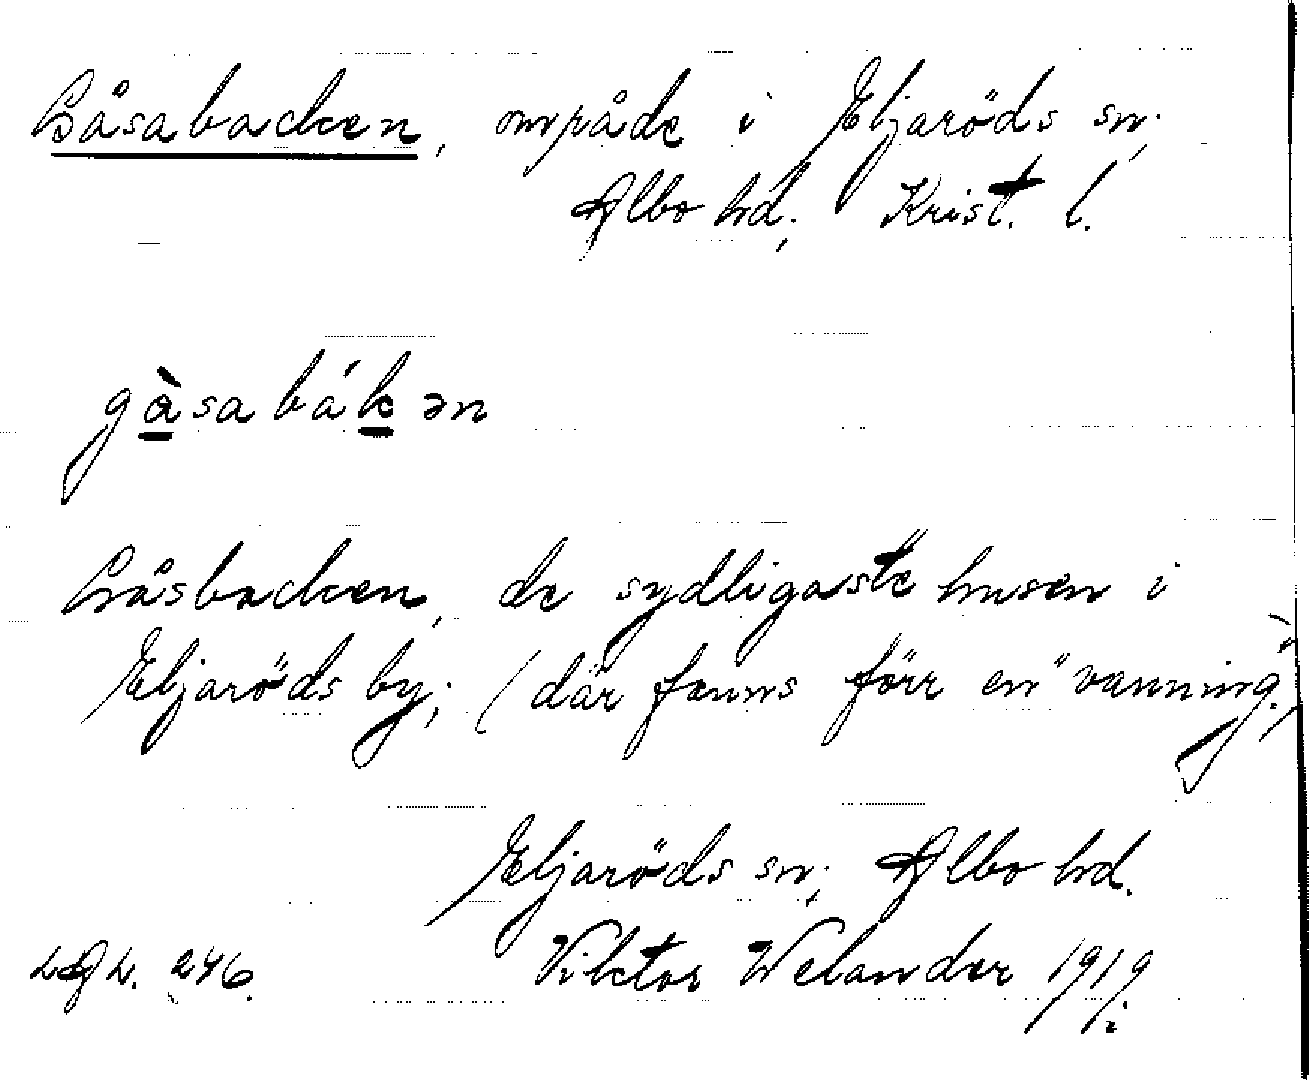 Gåsabacken, område i Eljaröds sn;
Albo hd; Krist. l.
gàsabákən
Gåsbacken, de sydligaste husen i
Eljaröds by; (där fanns förr en "vanning",)
Eljaröds sn; Albo hd.
LAL. 246. Viktor Welander 1919.